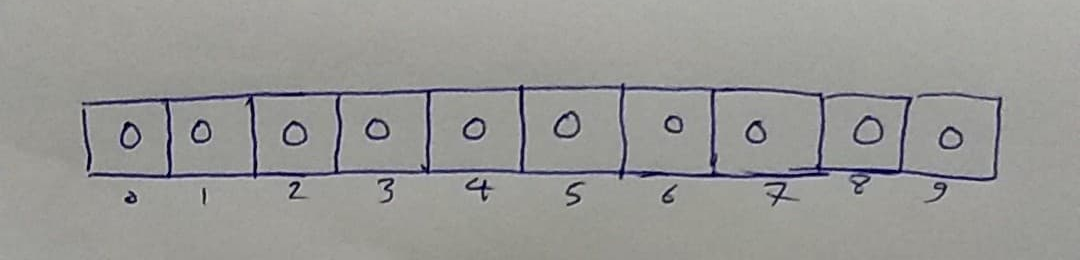 0 0 0 0 0 0 0 0 0 0
0 1 2 3 4 5 6 7 8 9